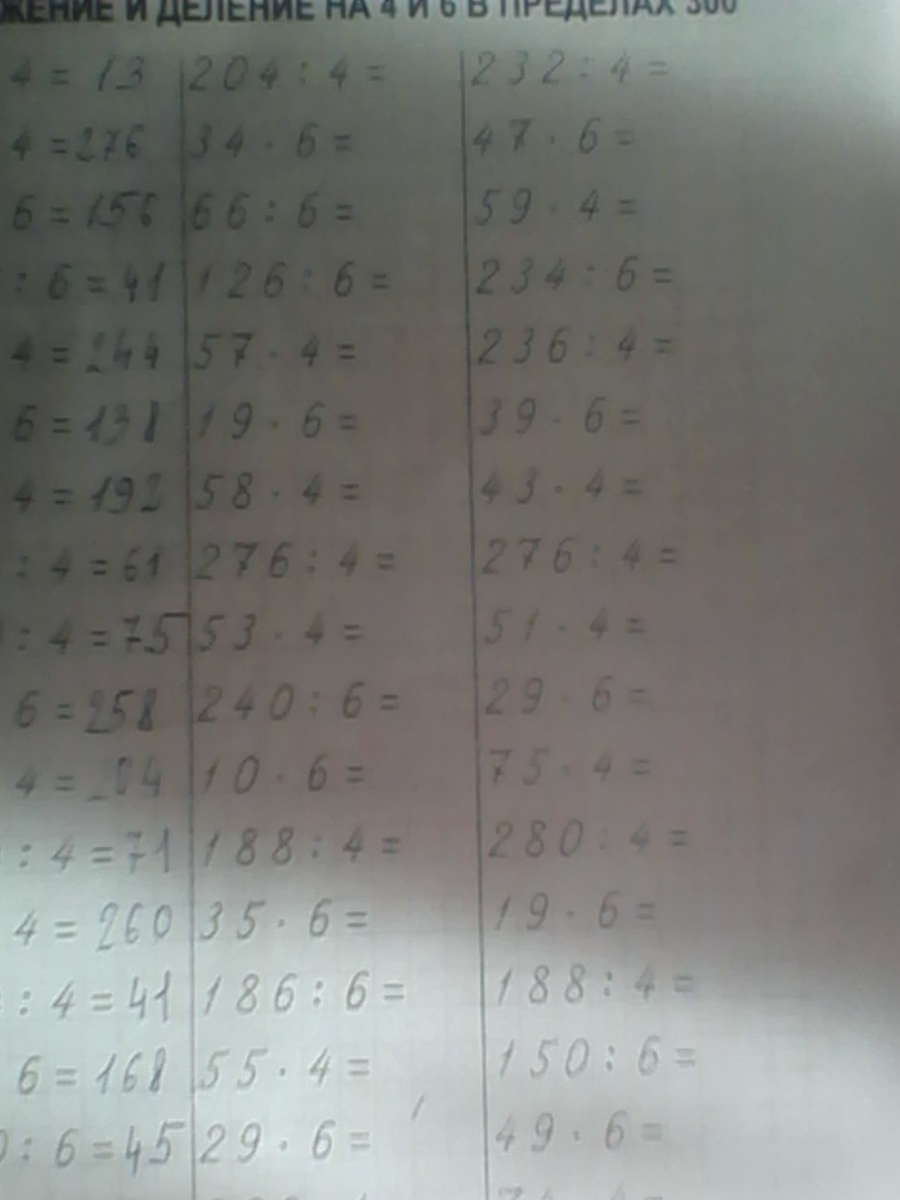 ЖЕНИЕ И ДЕЛЕНИЕ НА 4 И 6 В ПРЕДЕЛАХ 300
4 = 13 204 : 4 = 232 : 4 =
4 = 276 34 · 6 = 47 · 6 =
6 = 156 66 : 6 = 59 · 4 =
: 6 = 41 126 : 6 = 234 : 6 =
4 = 244 57 · 4 = 236 : 4 =
6 = 138 19 · 6 = 39 · 6 =
4 = 192 58 · 4 = 43 · 4 =
: 4 = 61 276 : 4 = 276 : 4 =
: 4 = 75 53 · 4 = 51 · 4 =
6 = 258 240 : 6 = 29 · 6 =
4 = 204 10 · 6 = 75 · 4 =
: 4 = 71 188 : 4 = 280 : 4 =
4 = 260 35 · 6 = 19 · 6 =
: 4 = 41 186 : 6 = 188 : 4 =
6 = 168 55 · 4 = 150 : 6 =
0 : 6 = 45 29 · 6 = 49 · 6 =